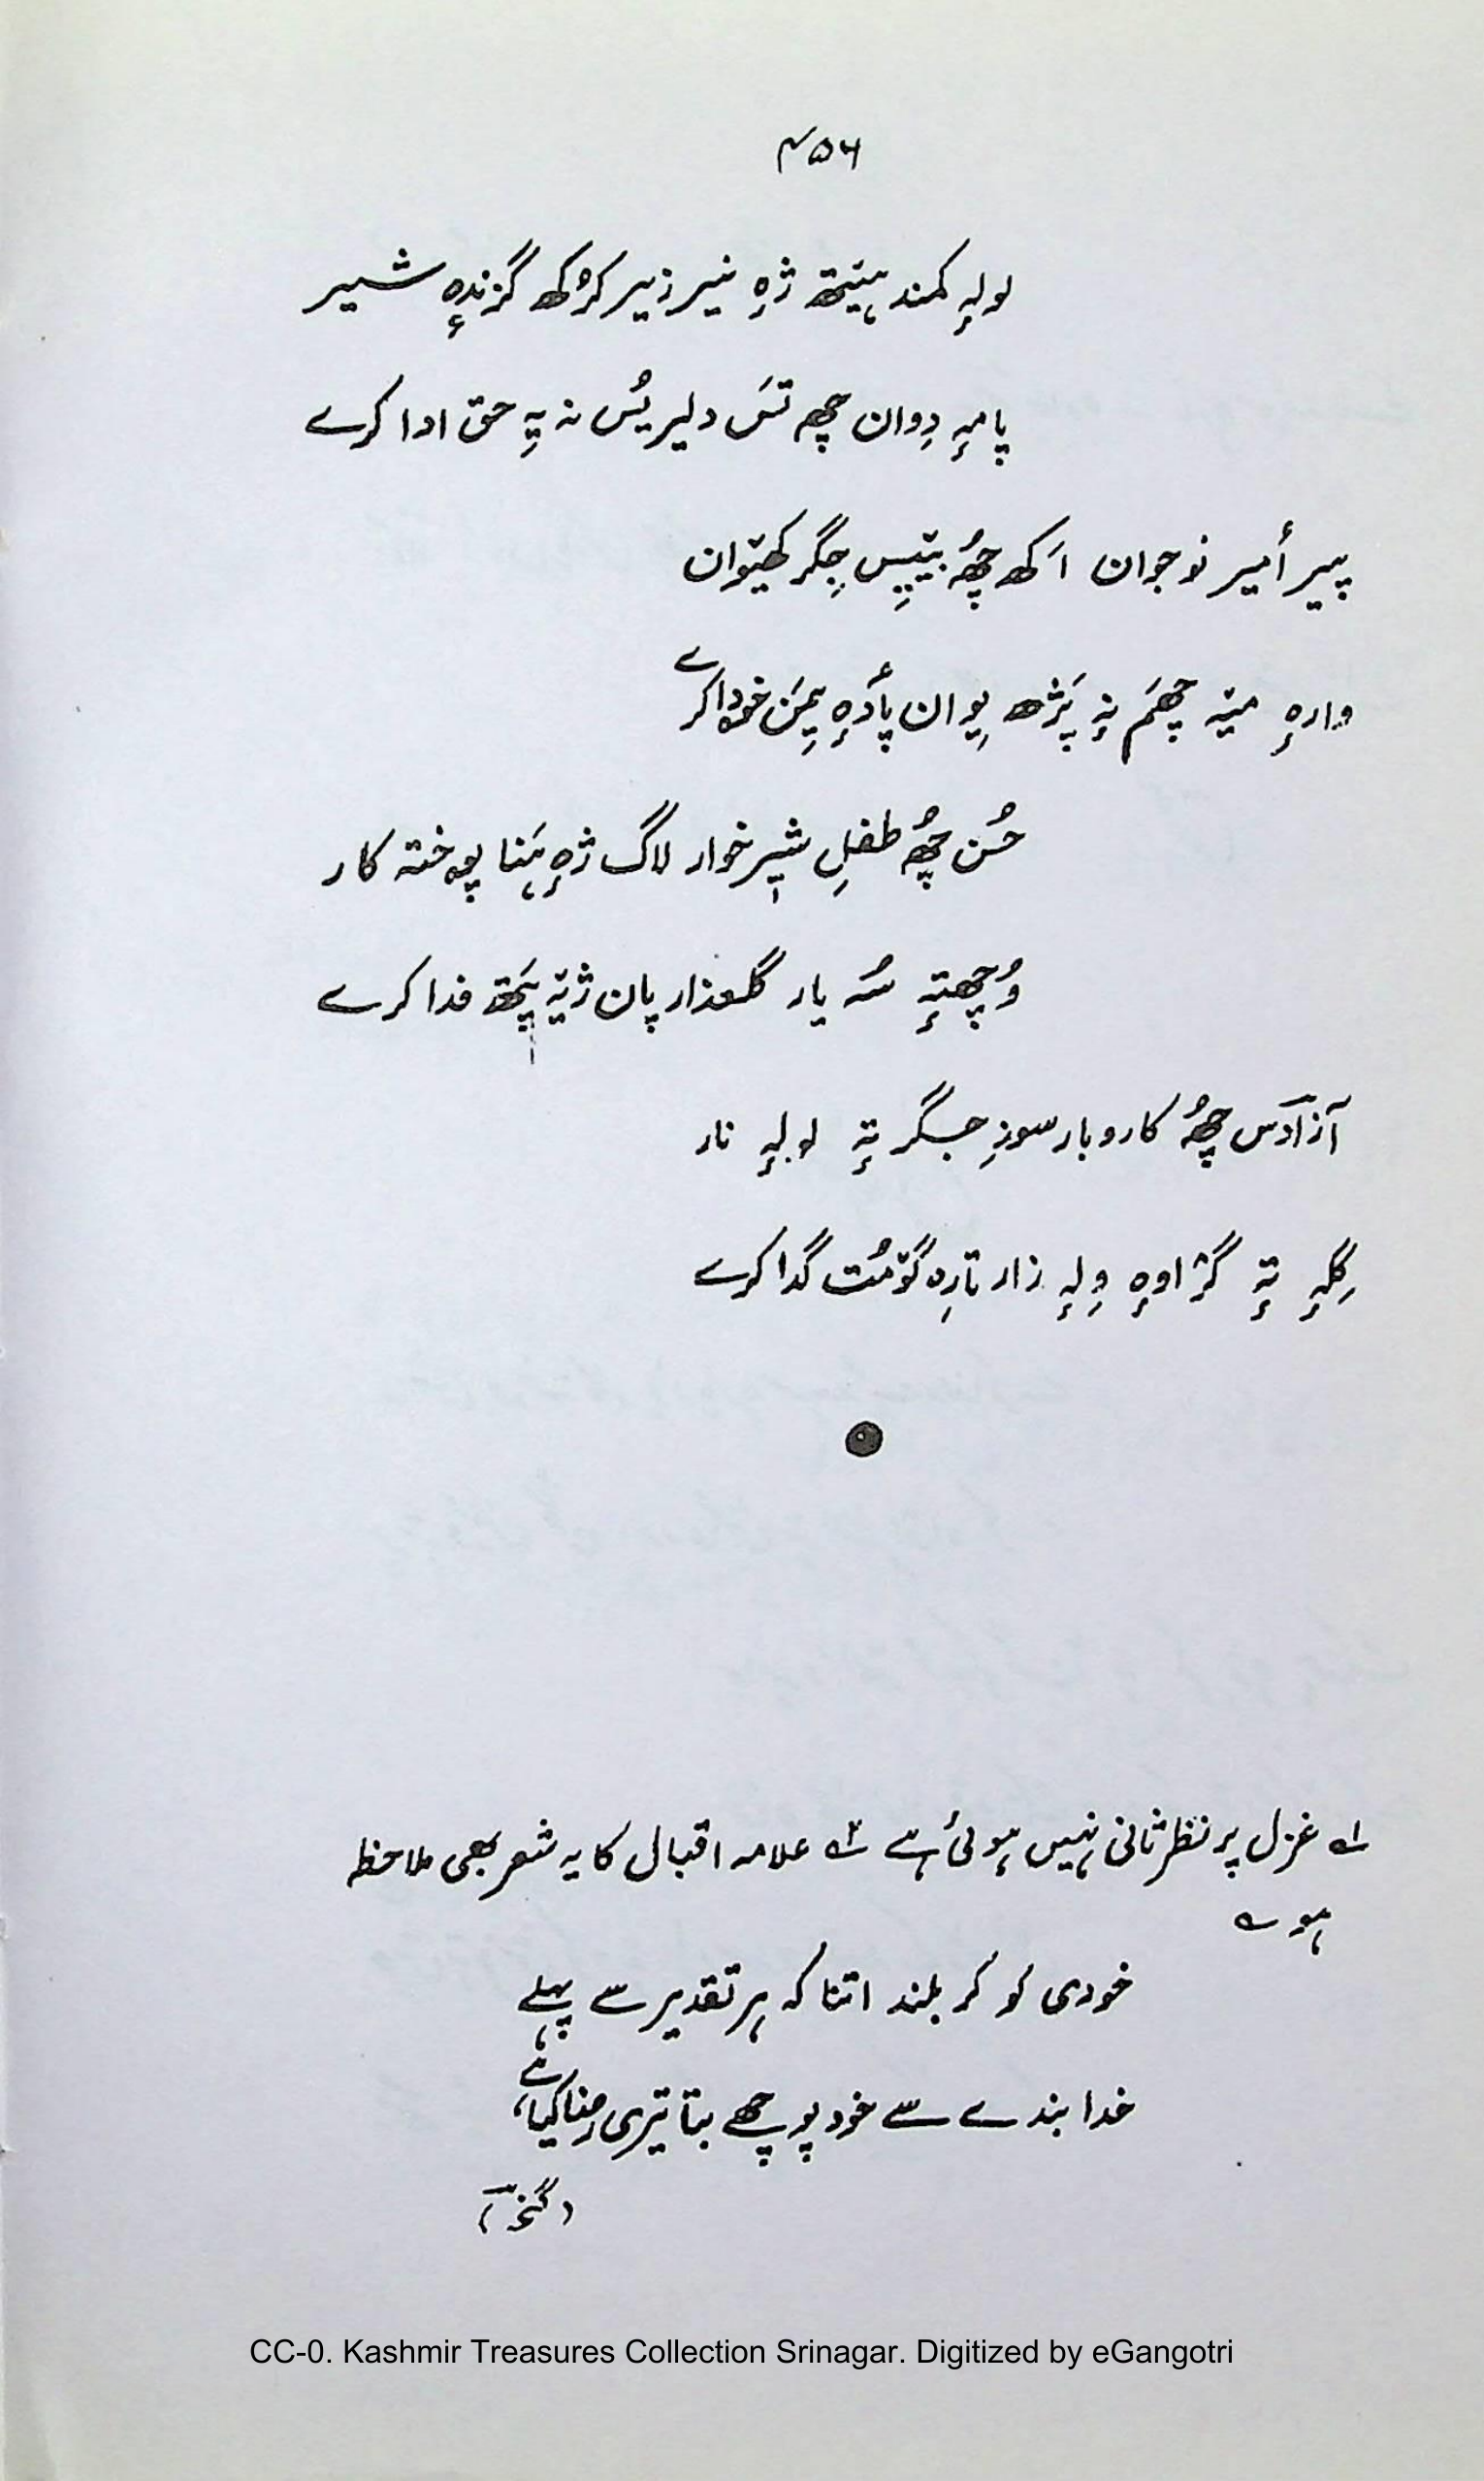 ۴۵۶
لولہٕ کمند ہیٚتھ ژٕہ نیر زیر کرُکھ گزندٕہ شیر
پامہٕ دِوان چھ تَس دلیر یُس نہ یِہ حق ادا کرے
پیر أمیر نوجوان اَکھ چھُ بیٚیِس جِگر کھیٚوان
وارہٕ میٚہ چھَم نہٕ پَژھ یِوان پأدٕہ یِمَن خودا کرے
حُسن چھُ طفلِ شیٖرخوار لاگ ژٕہ ہَنا پوختہ کار
وُچھتہٕ سُہ یار گلعذار پان ژیٚہ پَتھ فدا کرے
آزادس چھُ کاروبار سوزِ جگر تہٕ لولہٕ نار
گِلہٕ تہٕ گژاوٕہ وِلہٕ زار تارِہ گوٚمُت گدا کرے
۱؎ غزل پر نظر ثانی نہیں ہوئی ہے ۲؎ علامہ اقبال کا یہ شعر بھی ملاحظہ
ہو ؎
خودی کو کر بلند اتنا کہ ہر تقدیر سے پہلے
خدا بندے سے خود پوچھے بتا تیری رضا کیا ہے
CC-0. Kashmir Treasures Collection Srinagar. Digitized by eGangotri